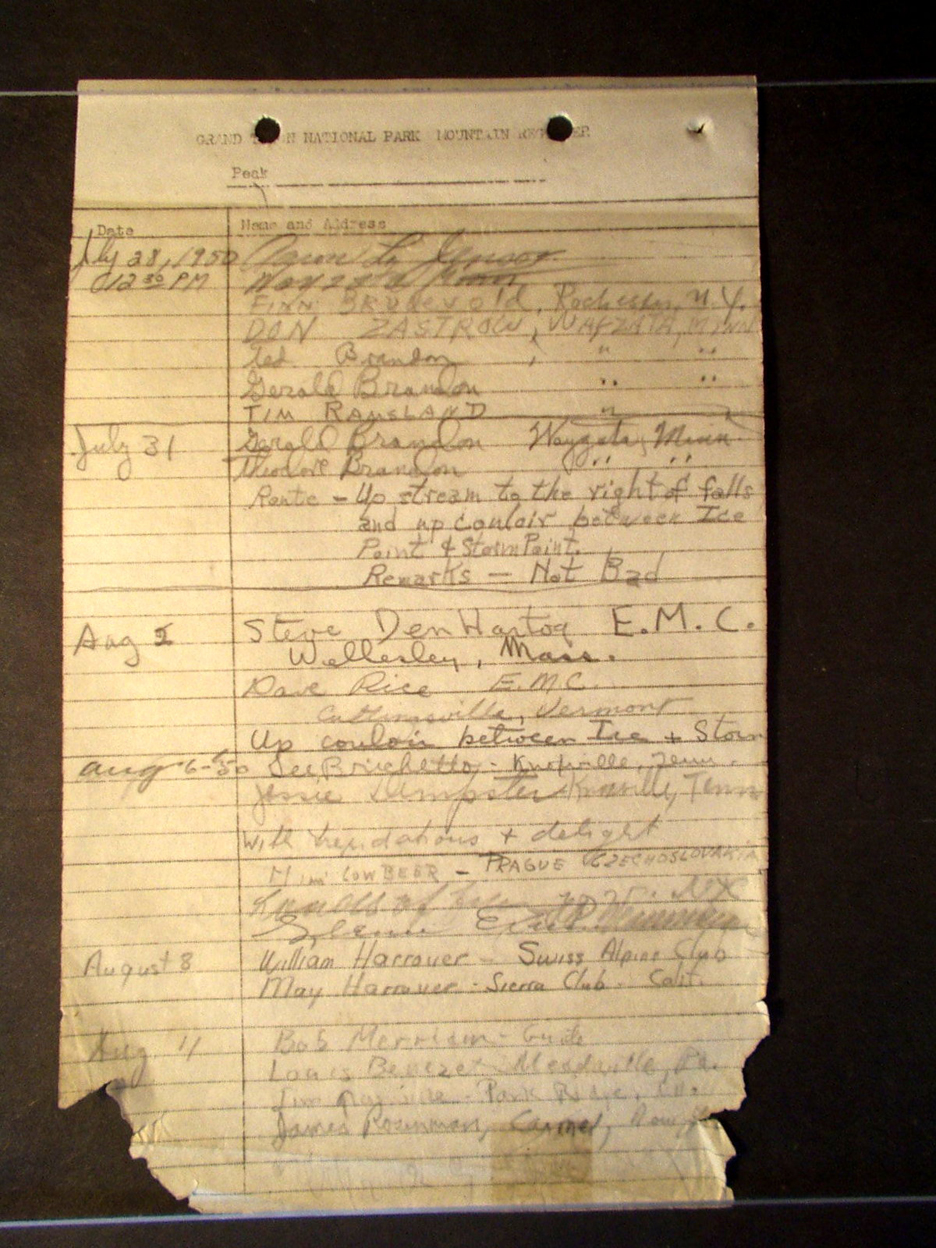 GRAND NATIONAL PARK MOUNTAIN REGISTER
Peak
Date Name and Address
July 28, 1950
12 30 PM
FINN Rochester, N.Y.
DON ZASTROW, WAYZATA, MINN
Ted Brandon , " "
Gerald Brandon " "
TIM RAMSLAND "
July 31 Gerald Brandon Wayzata, Minn.
Theodore Brandon " "
Route - Up stream to the right of falls
and up couloir between Ice
Point & Storm Point.
Remarks - Not Bad
Aug 5 Steve Den Hartog E.M.C.
Wellesley, Mass.
Dave Rice E.M.C.
Vermont
Up couloir between Ice + Storm
Aug 6-50 Lee Brichetto - Knoxville, Tenn.
Jessie Dempster Knoxville, Tenn
With trepidations + delight
LOWBEER - PRAGUE CZECHOSLOVAKIA
August 8 William Harrouer - Swiss Alpine Club
May Harrouer - Sierra Club - Calif.
Aug 11 Bob Merriam - Guide
Louis Benezet Meadville, Pa.
Park Ridge, Ill.
James Rosenman, Carmel,